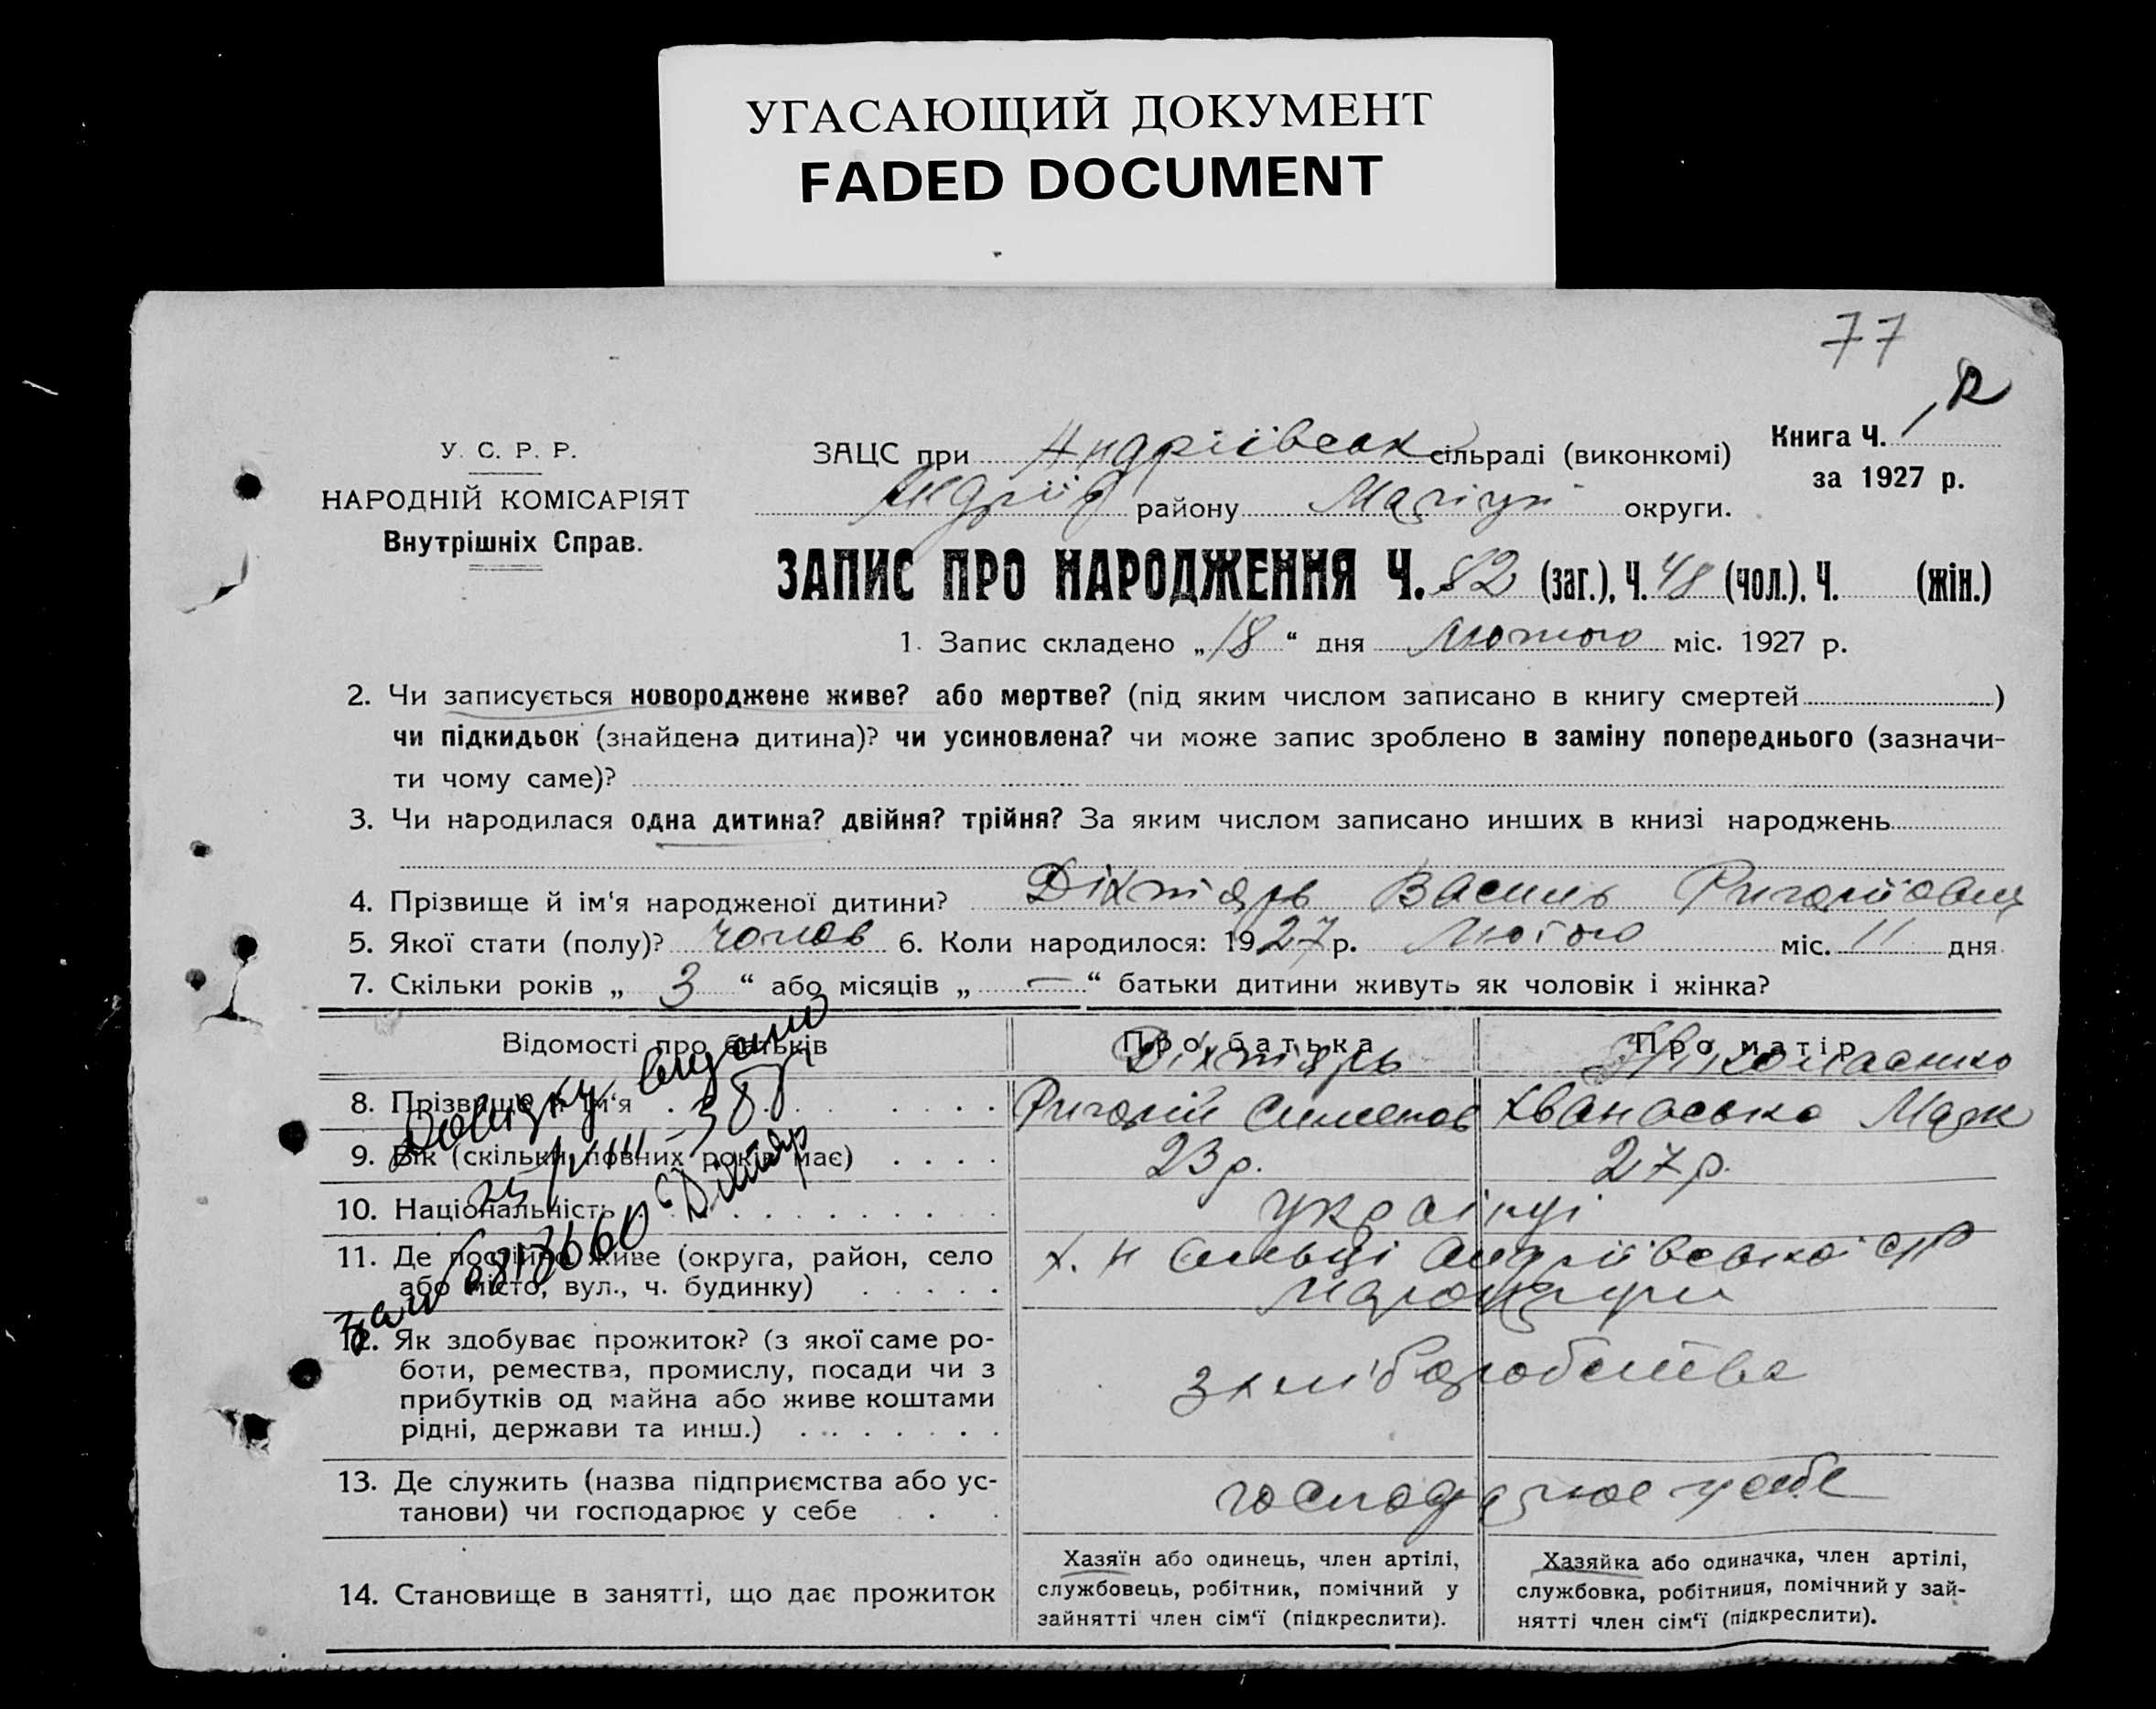 УГАСАЮЩИЙ ДОКУМЕНТ
FADED DOCUMENT
77
У. С. Р. Р.
НАРОДНІЙ КОМІСАРІЯТ
Внутрішніх Справ.
ЗАЦС при Андріївськ сільраді (виконкомі)
Книга Ч.
за 1927 р.
Андріїв району округи.
ЗАПИС ПРО НАРОДЖЕННЯ Ч. 82 (заг.), Ч. 48 (чол.), Ч. (жін.)
1. Запис складено „18“ дня Лютого міс. 1927 р.
2. Чи записується новороджене живе? або мертве? (під яким числом записано в книгу смертей )
чи підкидьок (знайдена дитина)? чи усиновлена? чи може запис зроблено в заміну попереднього (зазначи-
ти чому саме)?
3. Чи народилася одна дитина? двійня? трійня? За яким числом записано инших в книзі народжень
4. Прізвище й ім‘я народженої дитини? Діхтярь Василь Григорійович
5. Якої стати (полу)? чолов 6. Коли народилося: 1927 р. Лютого міс. 11 дня
7. Скільки років „ 3 “ або місяців „ — “ батьки дитини живуть як чоловік і жінка?
Відомості про батьків
Про батька
Про матір
Діхтярь
Ніколаєнко
8. Прізвище й ім‘я
Григорій Семенов
9. Вік (скільки повних років має)
23 р.
27 р.
10. Національність
українці
11. Де постійно живе (округа, район, село
або місто, вул., ч. будинку)
Андріївської с/р
12. Як здобуває прожиток? (з якої саме ро-
боти, ремества, промислу, посади чи з
прибутків од майна або живе коштами
рідні, держави та инш.)
з хліборобства
13. Де служить (назва підприємства або ус-
танови) чи господарює у себе
господарює у себе
14. Становище в занятті, що дає прожиток
Хазяїн або одинець, член артілі,
службовець, робітник, помічний у
зайнятті член сім‘ї (підкреслити).
Хазяйка або одиначка, член артілі,
службовка, робітниця, помічний у зай-
нятті член сім‘ї (підкреслити).
Довідку видано
Діхтяр